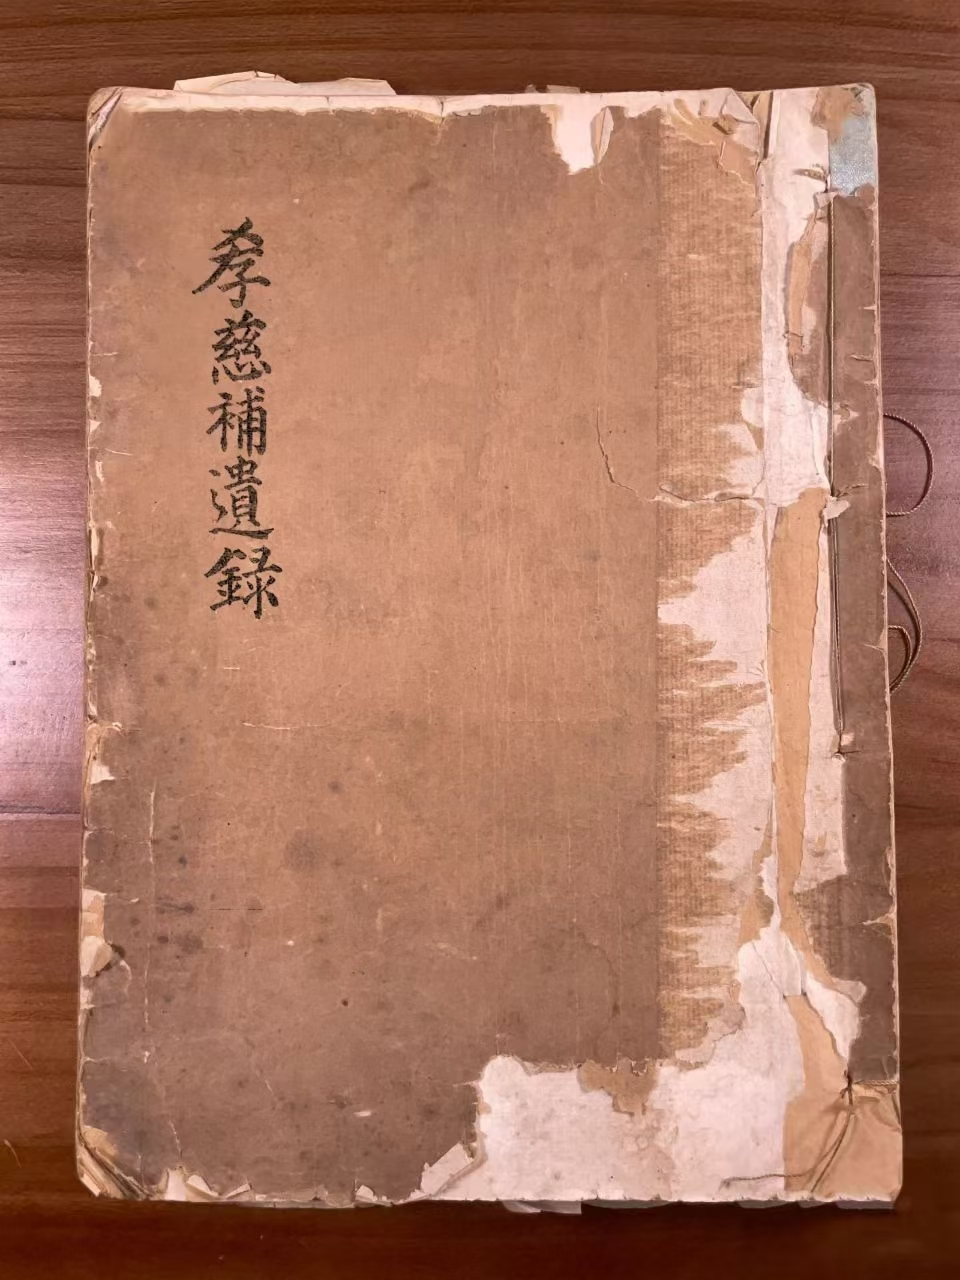 孝慈補遺録